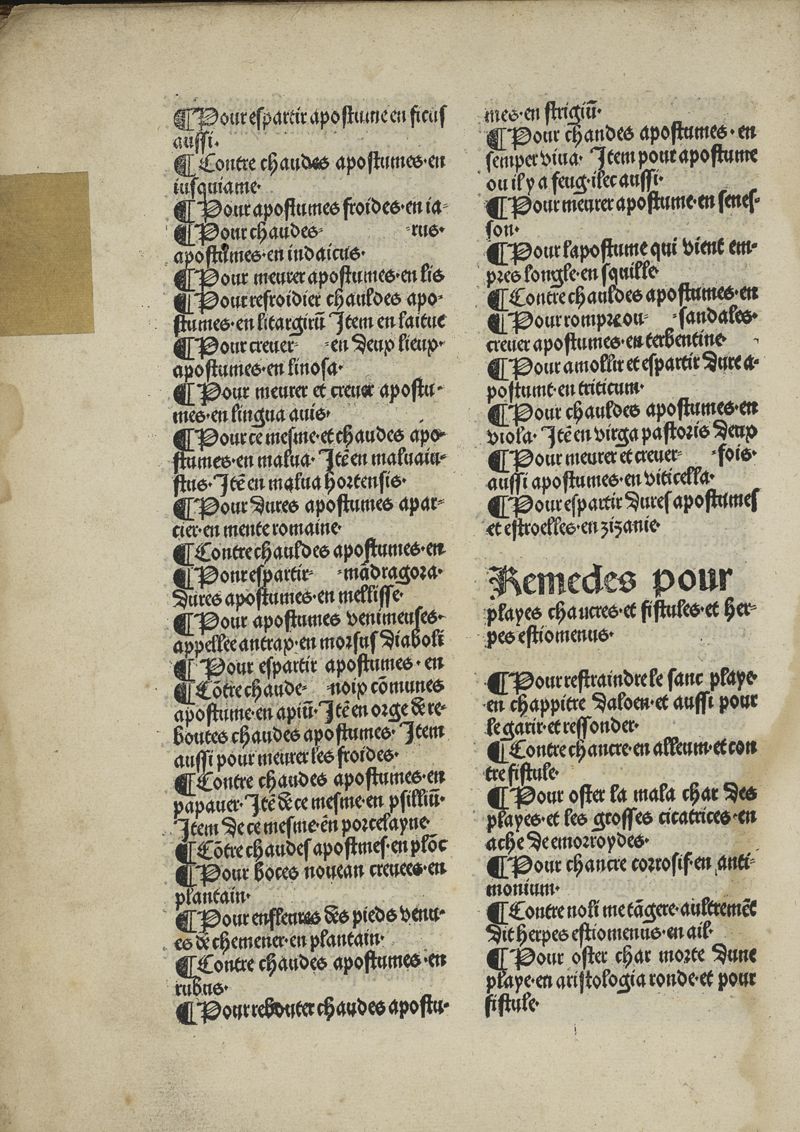 ¶ Pour espartir apostume en ficus
aussi.
¶ Contre chaudes apostumes·en
iusquiame·
¶ Pour apostumes froides·en ia-
¶ Pour chaudes- -rus·
apostumes·en indaicus·
¶ Pour meurer apostumes·en lis
¶ Pour refroidier chauldes apo-
stumes·en litargirū Item en laitue
¶ Pour creuer- -en deux lieux·
apostumes·en linosa·
¶ Pour meurer et creuer apostu-
mes·en lingua auis·
¶ Pour ce mesme·et chaudes apo-
stumes·en malua· Itē en maluaiu-
stus· Itē en malua hortensis·
¶ Pour dures apostumes apar-
tier·en mente romaine·
¶ Contre chauldes apostumes·en
¶ Pour espartir- -mādragora·
dures apostumes·en mellisse·
¶ Pour apostumes venimeuses·
appellee antrax·en morsus diaboli
¶ Pour espartir apostumes·en
¶ Cōtre chaude- -noix cōmunes
apostume·en apiū· Itē en orge & re-
boutes chaudes apostumes· Item
aussi pour meurer les froides·
¶ Contre chaudes apostumes·en
papauer· Itē de ce mesme·en psilliū·
Item de ce mesme·en porcelayne·
¶ Cōtre chaudes apostmes·en plōc
¶ Pour boces nouean creuees·en
plantain·
¶ Pour enfleures des pieds venu-
es de chemener·en plantain·
¶ Contre chaudes apostumes·en
rubus·
¶ Pour rebouter chaudes apostu-
mes·en strigiū·
¶ Pour chandes apostumes·en
semperviua· Item pour apostume
ou il y a feug·ilec aussi·
¶ Pour meurer apostume·en senes-
son·
¶ Pour lapostume qui vient em-
pres longle·en squille
¶ Contre chauldes apostumes·en
¶ Pour rompre ou- -sandales·
creuer apostumes·en terbentine·
¶ Pour amollir et espartir dure a-
postume·en triticum·
¶ Pour chauldes apostumes·en
viola· Itē en virga pastoris deux
¶ Pour meurer et creuer- -fois·
aussi apostumes·en viticella·
¶ Pour espartir dures apostumes
et estroelles·en zizanie·
Remedes pour
playes chaucres·et fistules·et her-
pes estiomenus·
¶ Pour restraindre le sanc playe·
en chappitre daloen·et aussi pour
le garir·et ressonder·
¶ Contre chancre·en alleum·et con
tre fistule·
¶ Pour oster la mala char des
playes·et les grosses cicatrices·en
ache de emorroydes·
¶ Pour chancre corrosif·en anti-
monium·
¶ Contre noli me tāgere·aultremēt
dit herpes estiomenus·en ail·
¶ Pour oster char morte dune
playe·en aristologia ronde·et pour
fistule·